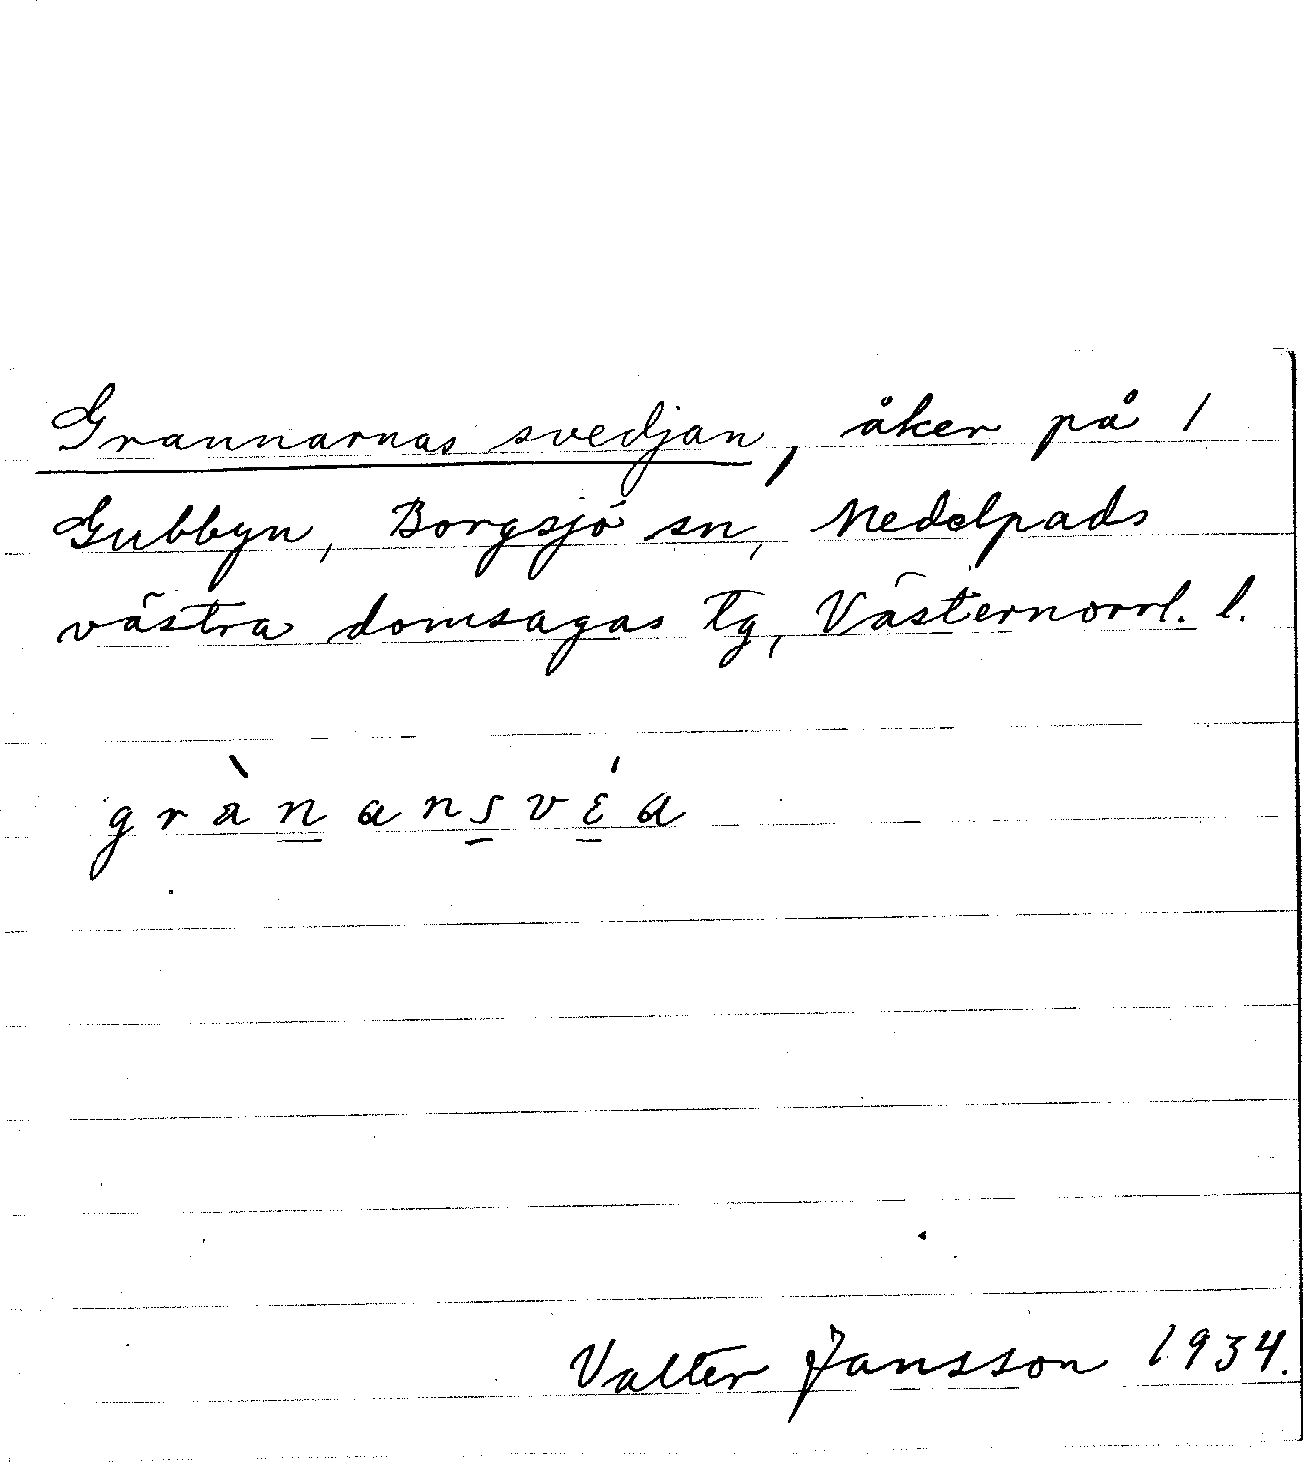 Grannarnas svedjan, åker på 1
Gubbyn, Borgsjö sn, Medelpads
västra domsagas tg, Västernorrl. l.
grànansvέa
Valter Jansson 1934.